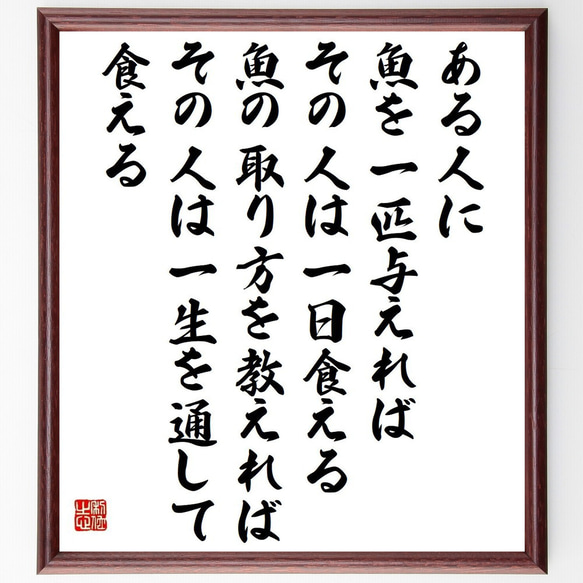 ある人に
魚を一匹与えれば
その人は一日食える
魚の取り方を教えれば
その人は一生を通して
食える